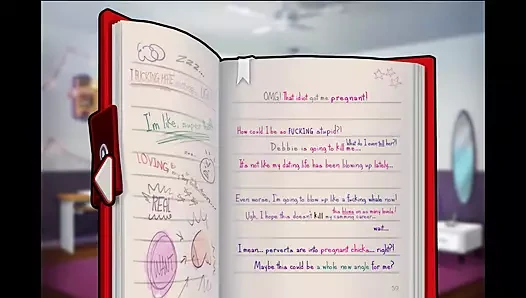 Zzz...
I'm like, super
LOVING
REAL
WANT
OMG! That idiot got me pregnant!
How could I be so FUCKING stupid?!
What do I even tell her?!
Debbie is going to kill me...
It's not like my dating life has been blowing up lately...
Even worse, I'm going to blow up like a fucking whale now!
this blows on so many levels!
Ugh, I hope this doesn't kill my camming career...
wait...
I mean... perverts are into pregnant chicks... right?!
Maybe this could be a whole new angle for me?